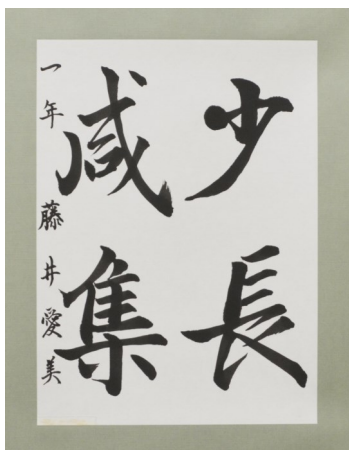 少長
咸集
一年 藤井愛美